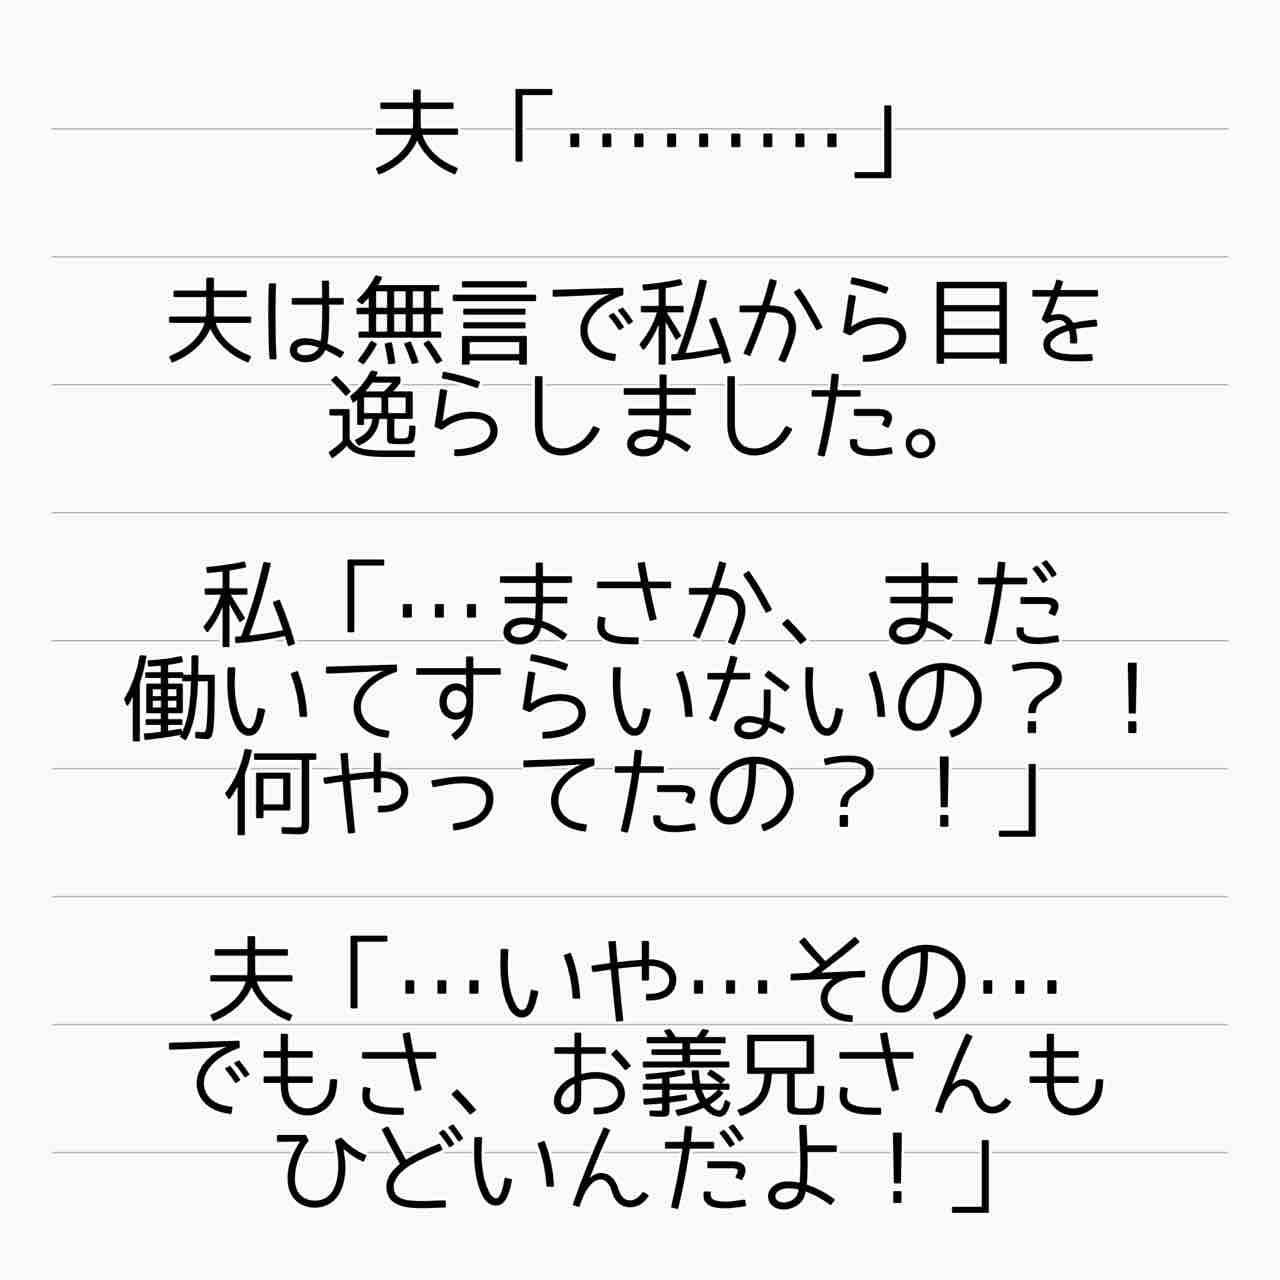 夫「………」
夫は無言で私から目を
逸らしました。
私「…まさか、まだ
働いてすらいないの？！
何やってたの？！」
夫「…いや…その…
でもさ、お義兄さんも
ひどいんだよ！」